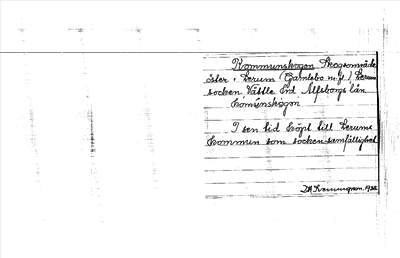 Kommunskogen Skogsområde
öster i Lerum (Gamlebo m.fl.) Lerum
socken Vättle hd Älfsborgs län
Komunskogen
I sen tid köpt till Lerums
kommun som sockensamfällighet
1938